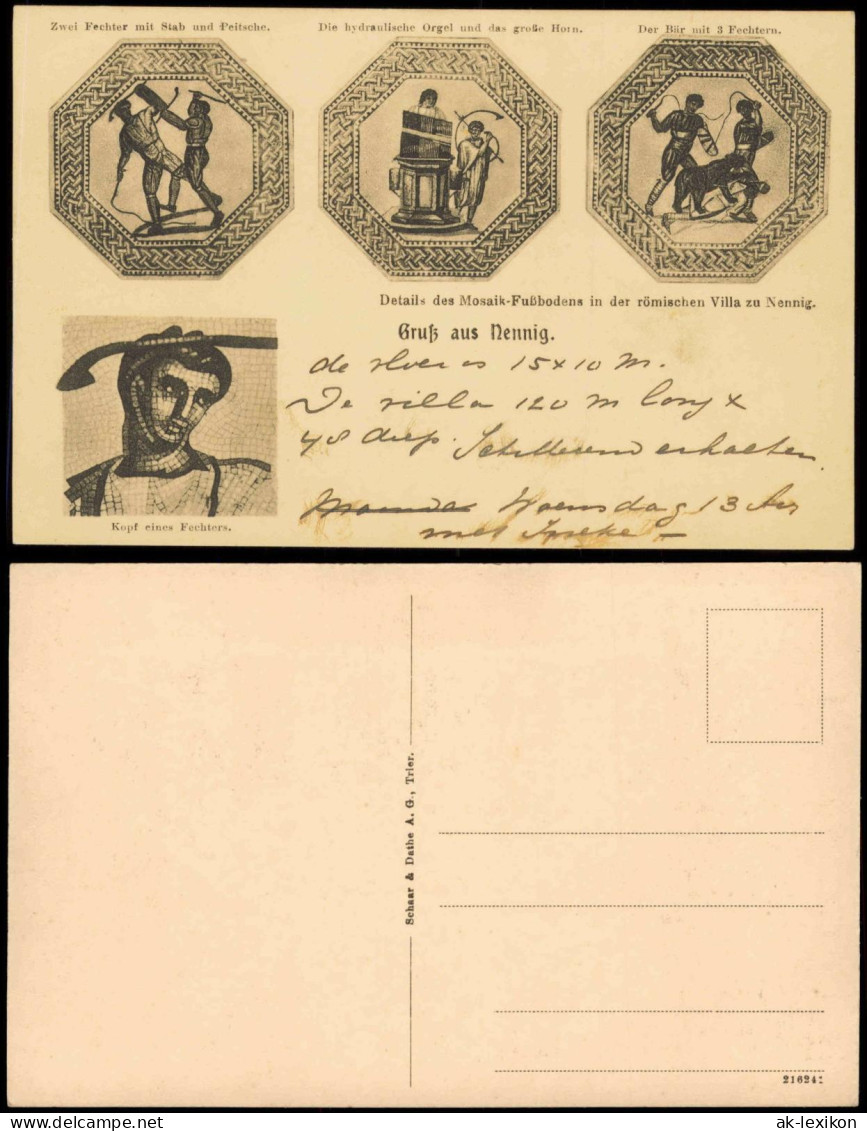 Zwei Fechter mit Stab und Peitsche.
Die hydraulische Orgel und das große Horn.
Der Bär mit 3 Fechtern.
Details des Mosaik-Fußbodens in der römischen Villa zu Nennig.
Gruß aus Nennig.
de vloer is 15x10 m.
De villa 120 m lang x
48 diep. Schitterend erhalten.
Woensdag 13
met
Kopf eines Fechters.
Schaar & Dathe A. G., Trier.
21624
ak-lexikon